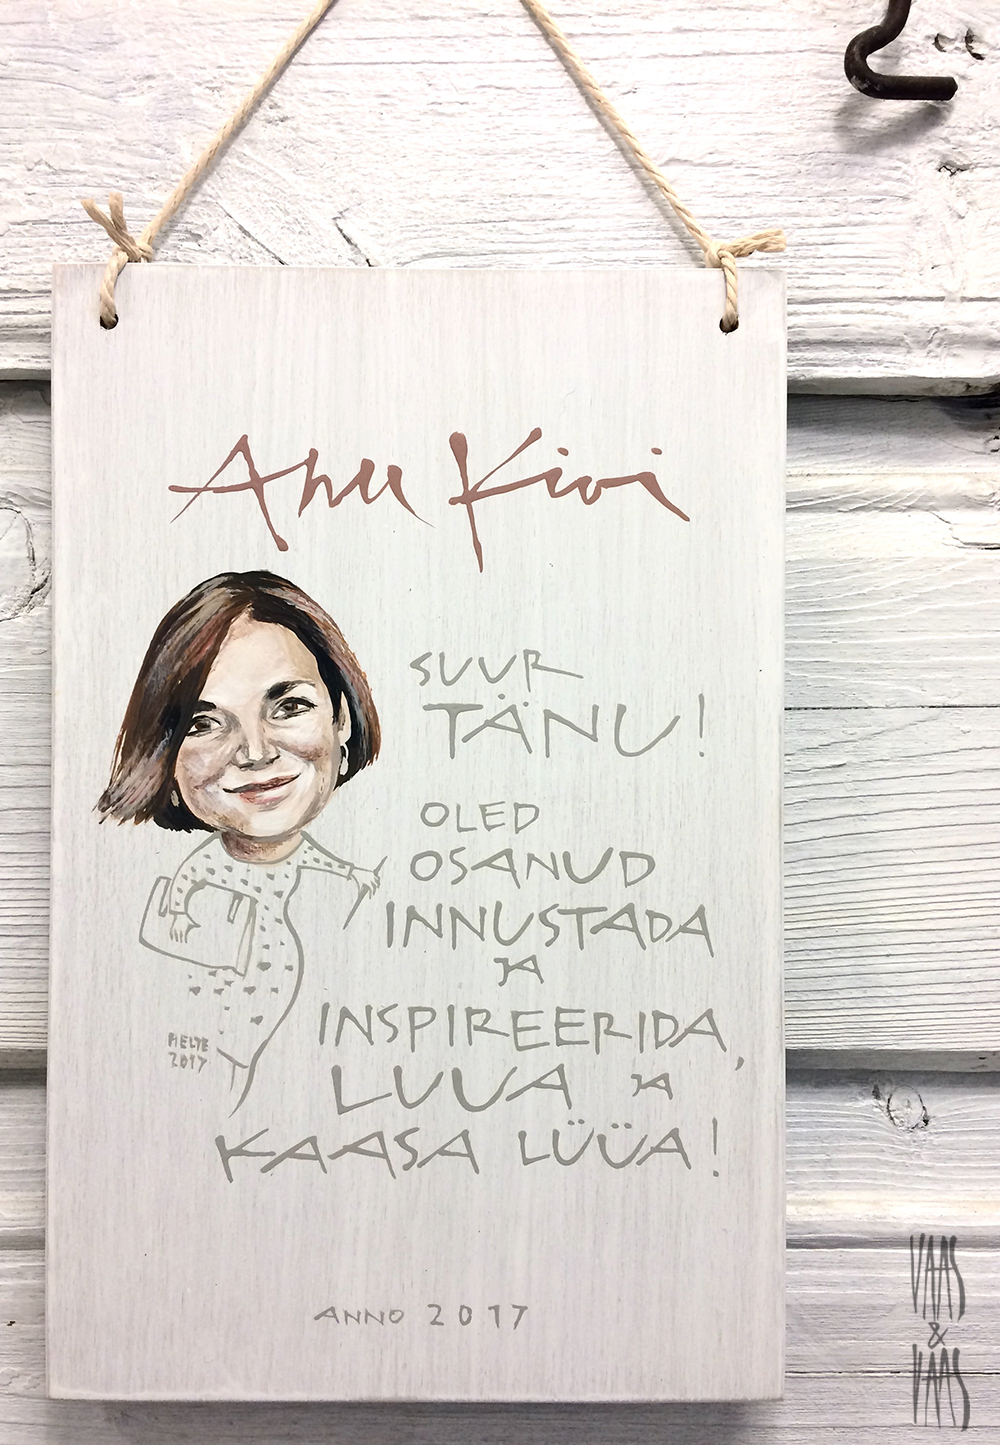 Anu Kivi
SUUR
TÄNU!
OLED
OSANUD
INNUSTADA
JA
INSPIREERIDA,
LUUA JA
KAASA LÜÜA!
2017
ANNO 2017
VAAS
&
VAAS